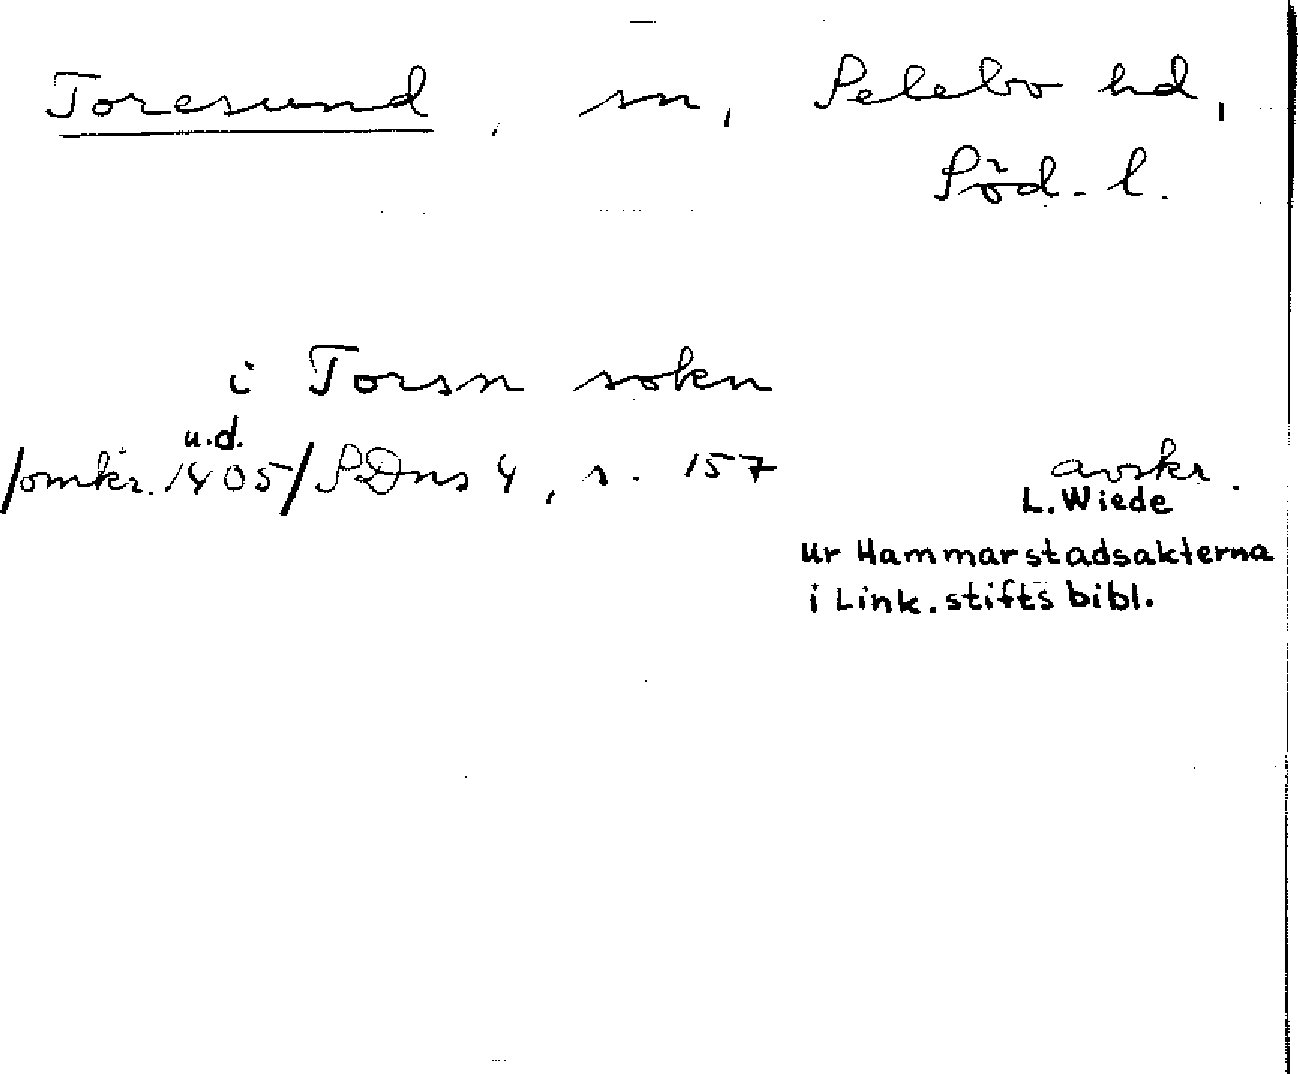 Toresund, sn, Selebo hd,
Söd. l.
i Torsn sokn
u.d.
/omkr. 1405/ SDns 4, s. 157 avskr.
L. Wiede
ur Hammarstadsakterna
i Link. stifts bibl.